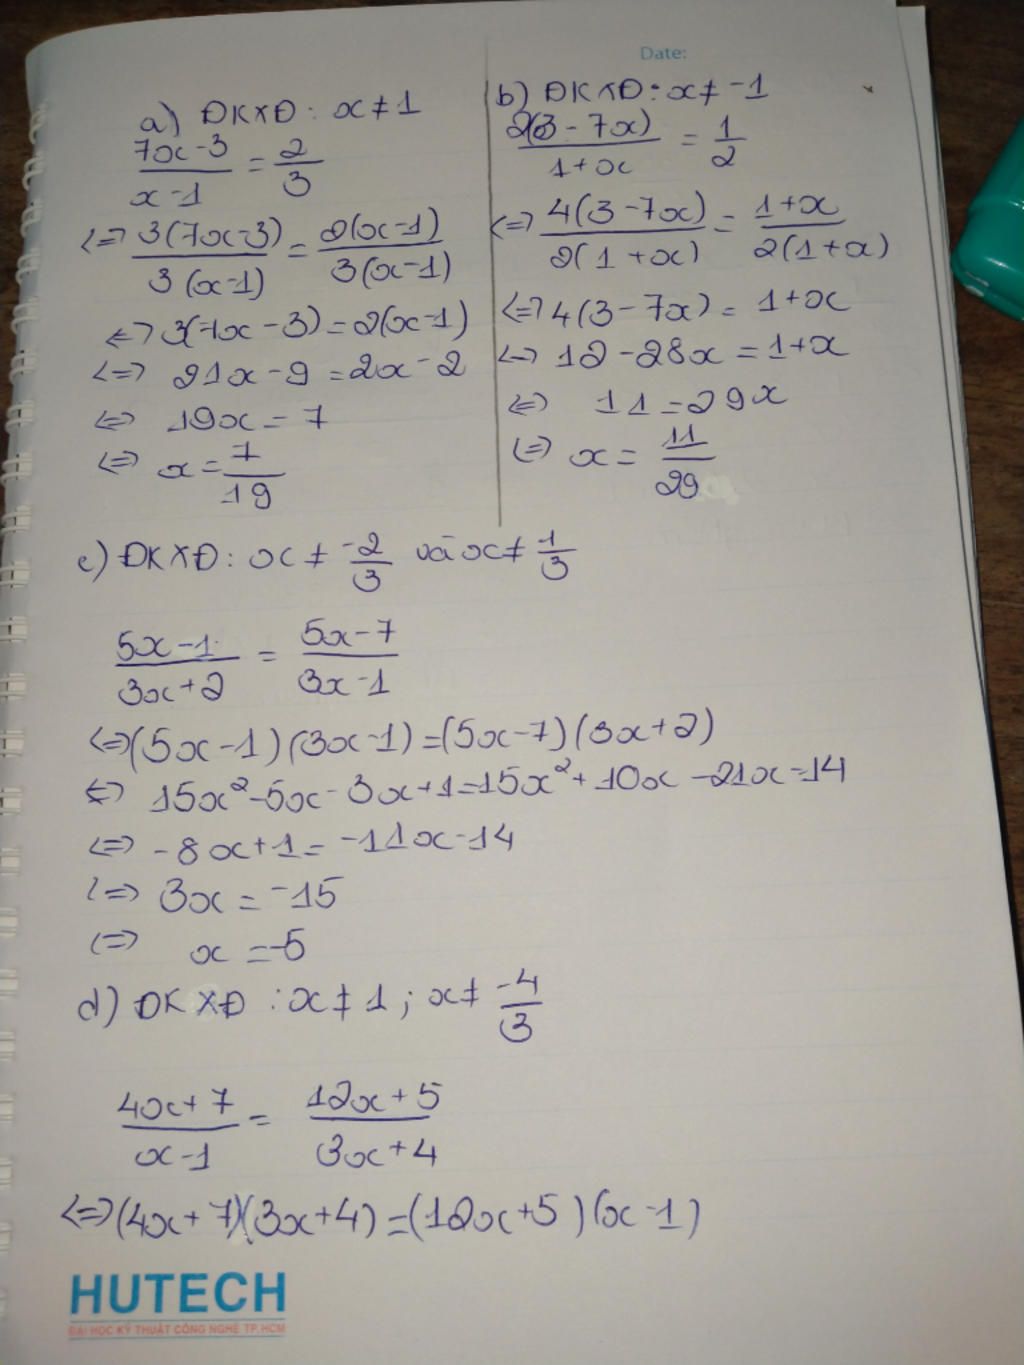 Date:
a) ĐKXĐ: x ≠ 1
(7x-3)/(x-1) = 2/3
<=> 3(7x-3)/3(x-1) = 2(x-1)/3(x-1)
<=> 3(7x-3) = 2(x-1)
<=> 21x-9 = 2x-2
<=> 19x = 7
<=> x = 7/19
b) ĐKXĐ: x ≠ -1
2(3-7x)/(1+x) = 1/2
<=> 4(3-7x)/2(1+x) = (1+x)/2(1+x)
<=> 4(3-7x) = 1+x
<=> 12-28x = 1+x
<=> 11 = 29x
<=> x = 11/29
c) ĐKXĐ: x ≠ -2/3 và x ≠ 1/3
(5x-1)/(3x+2) = (5x-7)/(3x-1)
<=> (5x-1)(3x-1) = (5x-7)(3x+2)
<=> 15x²-5x-3x+1 = 15x²+10x-21x-14
<=> -8x+1 = -11x-14
<=> 3x = -15
<=> x = -5
d) ĐKXĐ: x ≠ 1; x ≠ -4/3
(4x+7)/(x-1) = (12x+5)/(3x+4)
<=> (4x+7)(3x+4) = (12x+5)(x-1)
HUTECH
ĐẠI HỌC KỸ THUẬT CÔNG NGHỆ TP.HCM